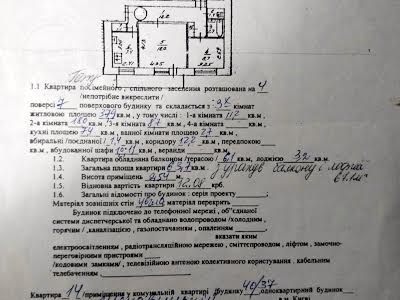 1.1 Квартира посімейного, спільного заселення розташована на 4
/непотрібне викреслити /
поверсі 7 поверхового будинку та складається з: 3х кімнат
житловою площею 37,9 кв.м , у тому числі : 1-а кімната 11,2 кв.м,
2-а кімната 18,0 кв.м ,3-я кімната 8,7 кв.м, 4-а кімната кв.м ,
кухні площею 7,9 кв.м , ванної кімнати площею 2,7 кв.м ,
вбиральні /поєднаної/ 1,4 кв.м , коридору 12,2 кв.м, передпокою
кв.м , вбудованої шафи кв.м, веранди кв.м
1.2. Квартира обладнана балконом /терасою / кв.м, лоджією 3,2 кв.м.
1.3. Загальна площа квартири балкону і лоджії
1.4. Висота приміщень
1.5. Відновна вартість квартири 12,08 крб.
1.6. Загальні відомості про будинок : серія проекту
Матеріал зовнішніх стін матеріал перекрить
Будинок підключено до телефонної мережі , об"єднаної
системи диспетчерської та обладнано водопроводом /холодним ,
горячим / ,каналізацією , газопостачанням , опаленням
вказати яким
електроосвітленням , радіотрансляційною мережею , сміттєпроводом , ліфтом , замочно-
переговорними пристроями
/кодовими замками/ , телевізійною антеною колективного користування , кабельним
телебаченням
Квартира 14 /приміщення у комунальній квартирі /будинку 40/37 /одноквартирний будинок
в м. Києві